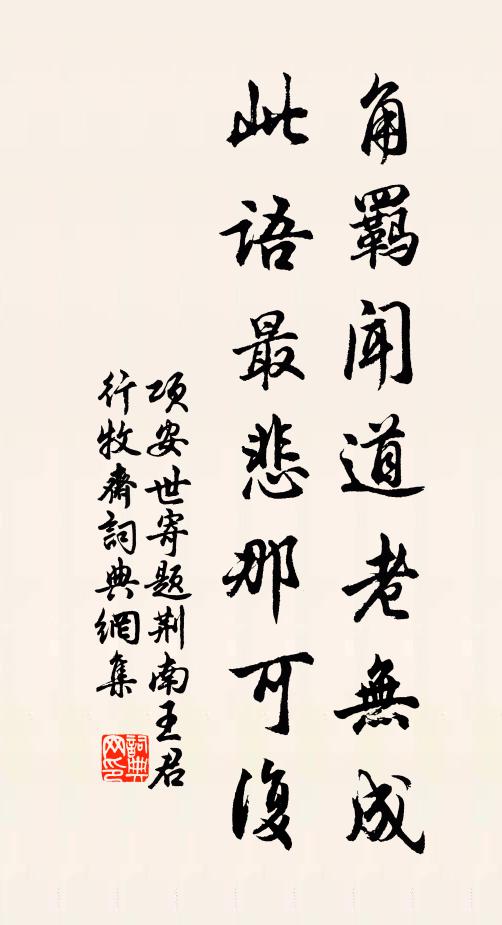 角羈聞道老無成
此語最悲那可復
項安世寄題荆南王君
行牧齋詞典網集
詞典
网印